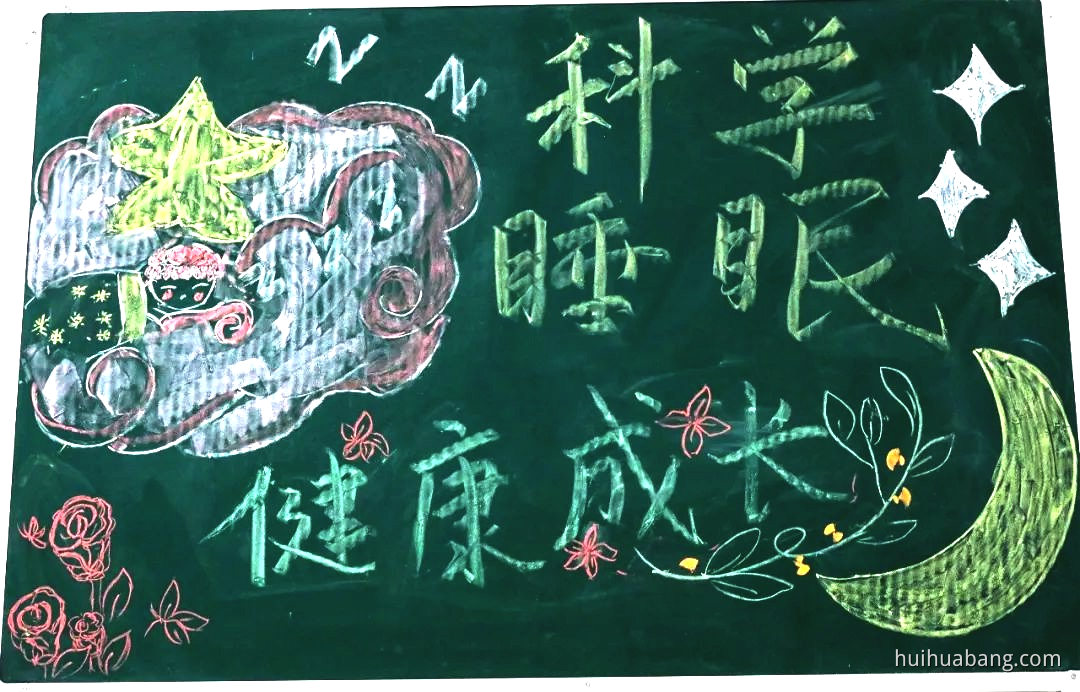 z z
科学
睡眠
健康成长
huihuabang.com